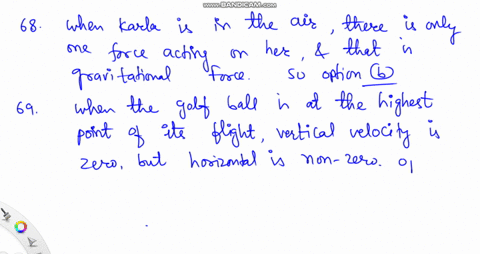 WWW.BANDICAM.COM
68. when Karla is in the air, there is only
one force acting on her, & that is
gravitational force. so option (b)
69. when the golf ball is at the highest
point of its flight, vertical velocity is
zero, but horizontal is non-zero. o|